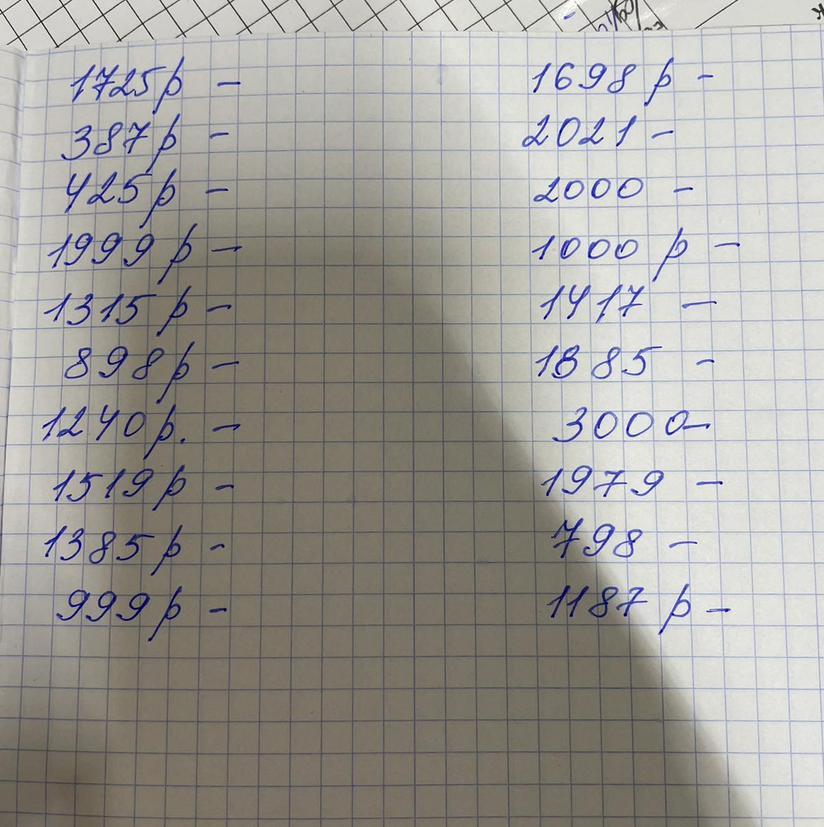 1725р –
387р –
425р –
1999р –
1315р –
898р –
1240р. –
1519р –
1385р –
999р –
1698р –
2021 –
2000 –
1000р –
1417 –
1885 –
3000 –
1979 –
798 –
1187р –